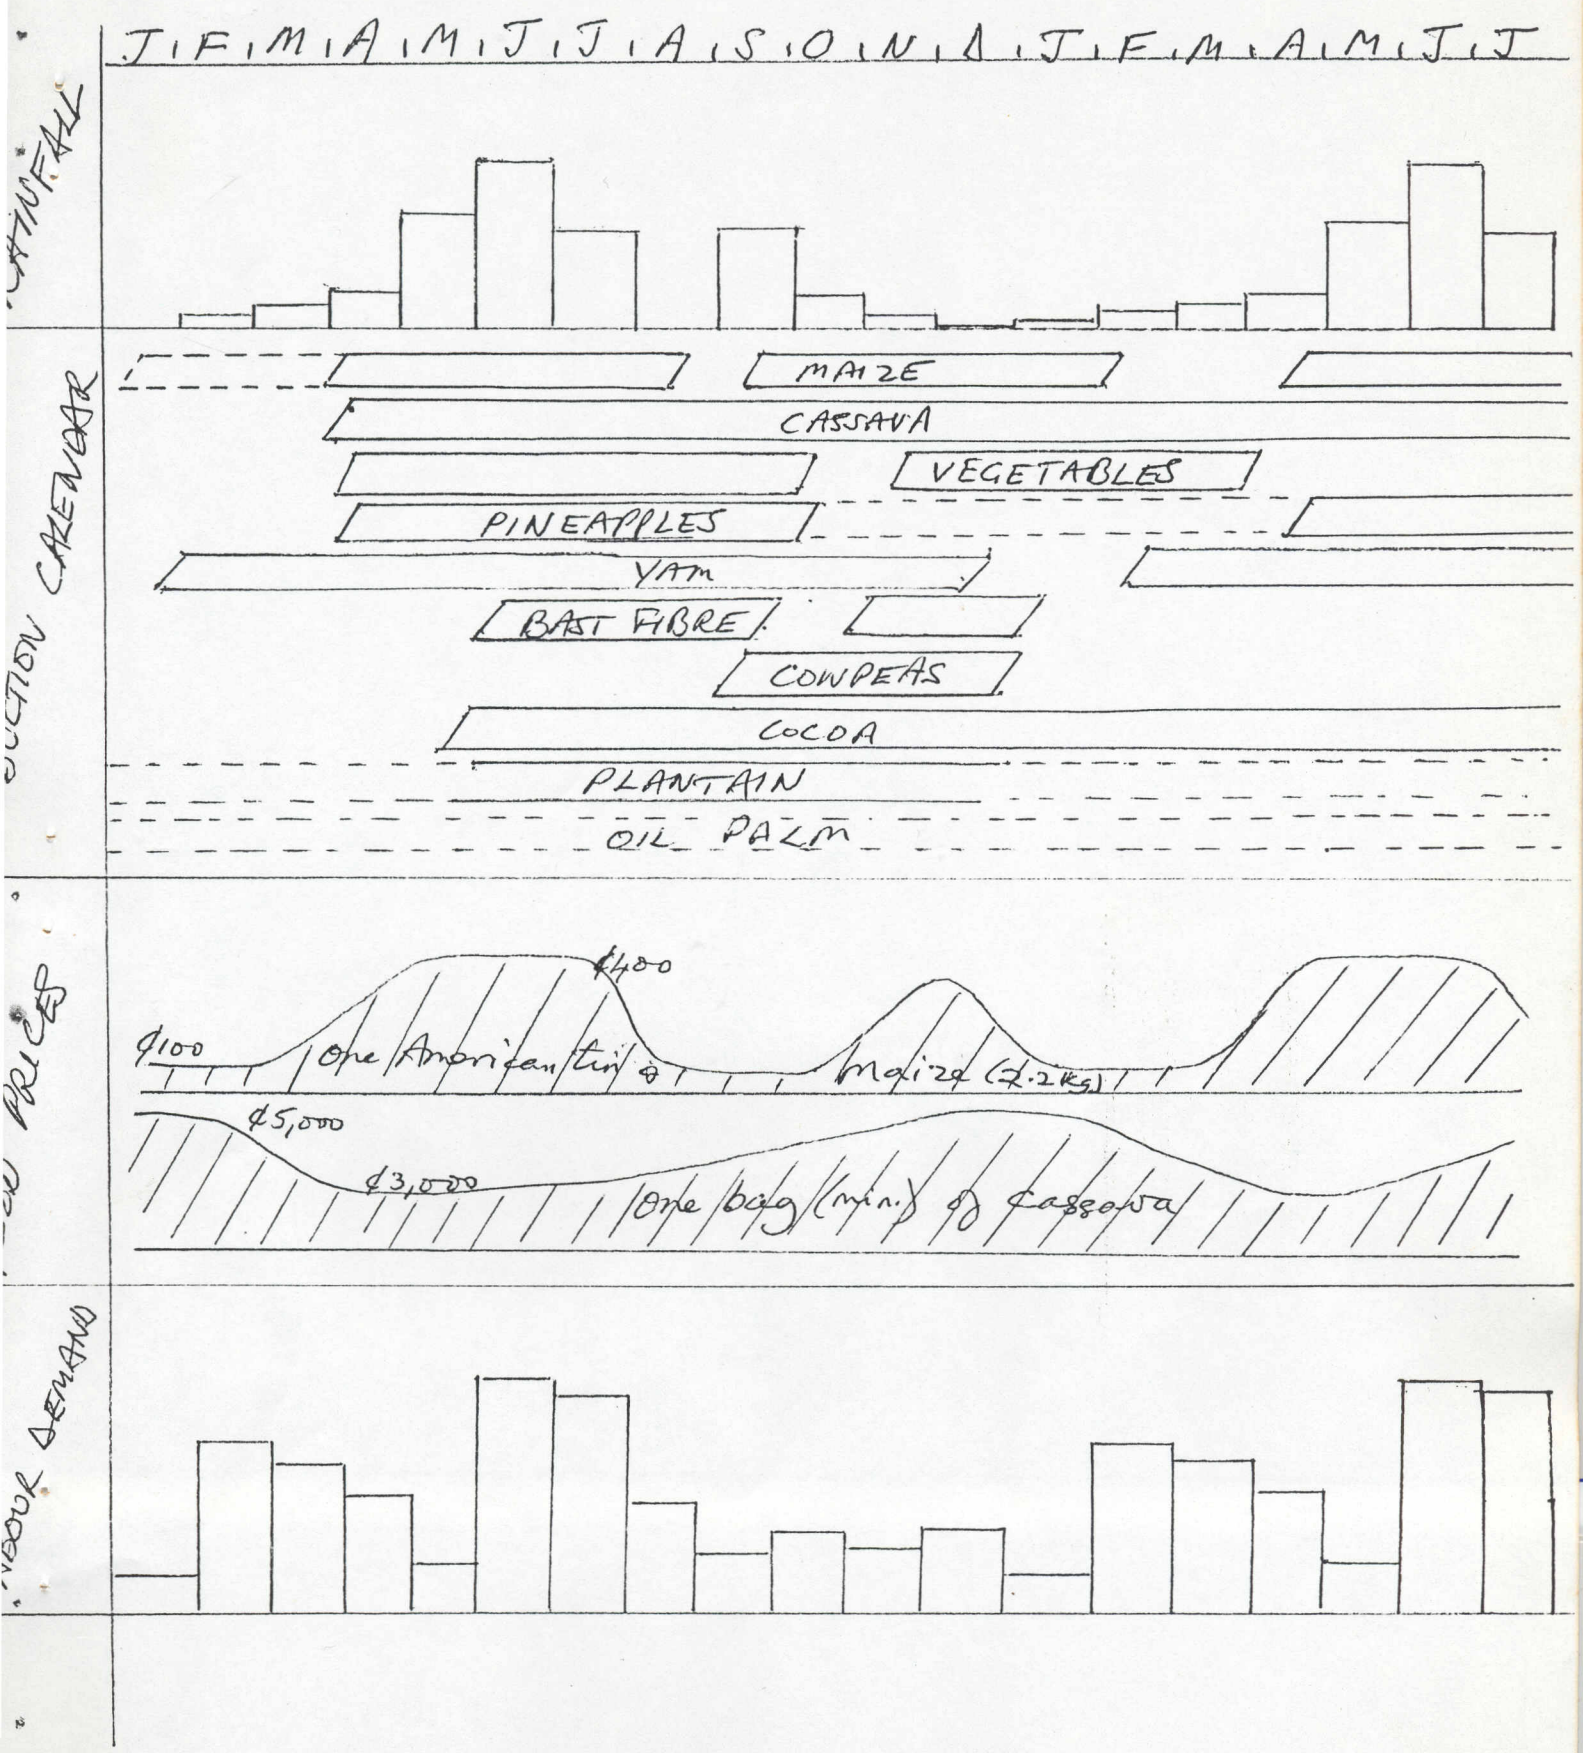 J F M A M J J A S O N D J F M A M J J
RAINFALL
MAIZE
CASSAVA
VEGETABLES
PINEAPPLES
YAM
BAST FIBRE
COWPEAS
COCOA
PLANTAIN
OIL PALM
UCTION CALENDAR
¢400
¢100
one American tin of maize (2.2kg)
¢5,000
¢3,000
one bag (min.) of cassava
PRICES
ABOUR DEMAND